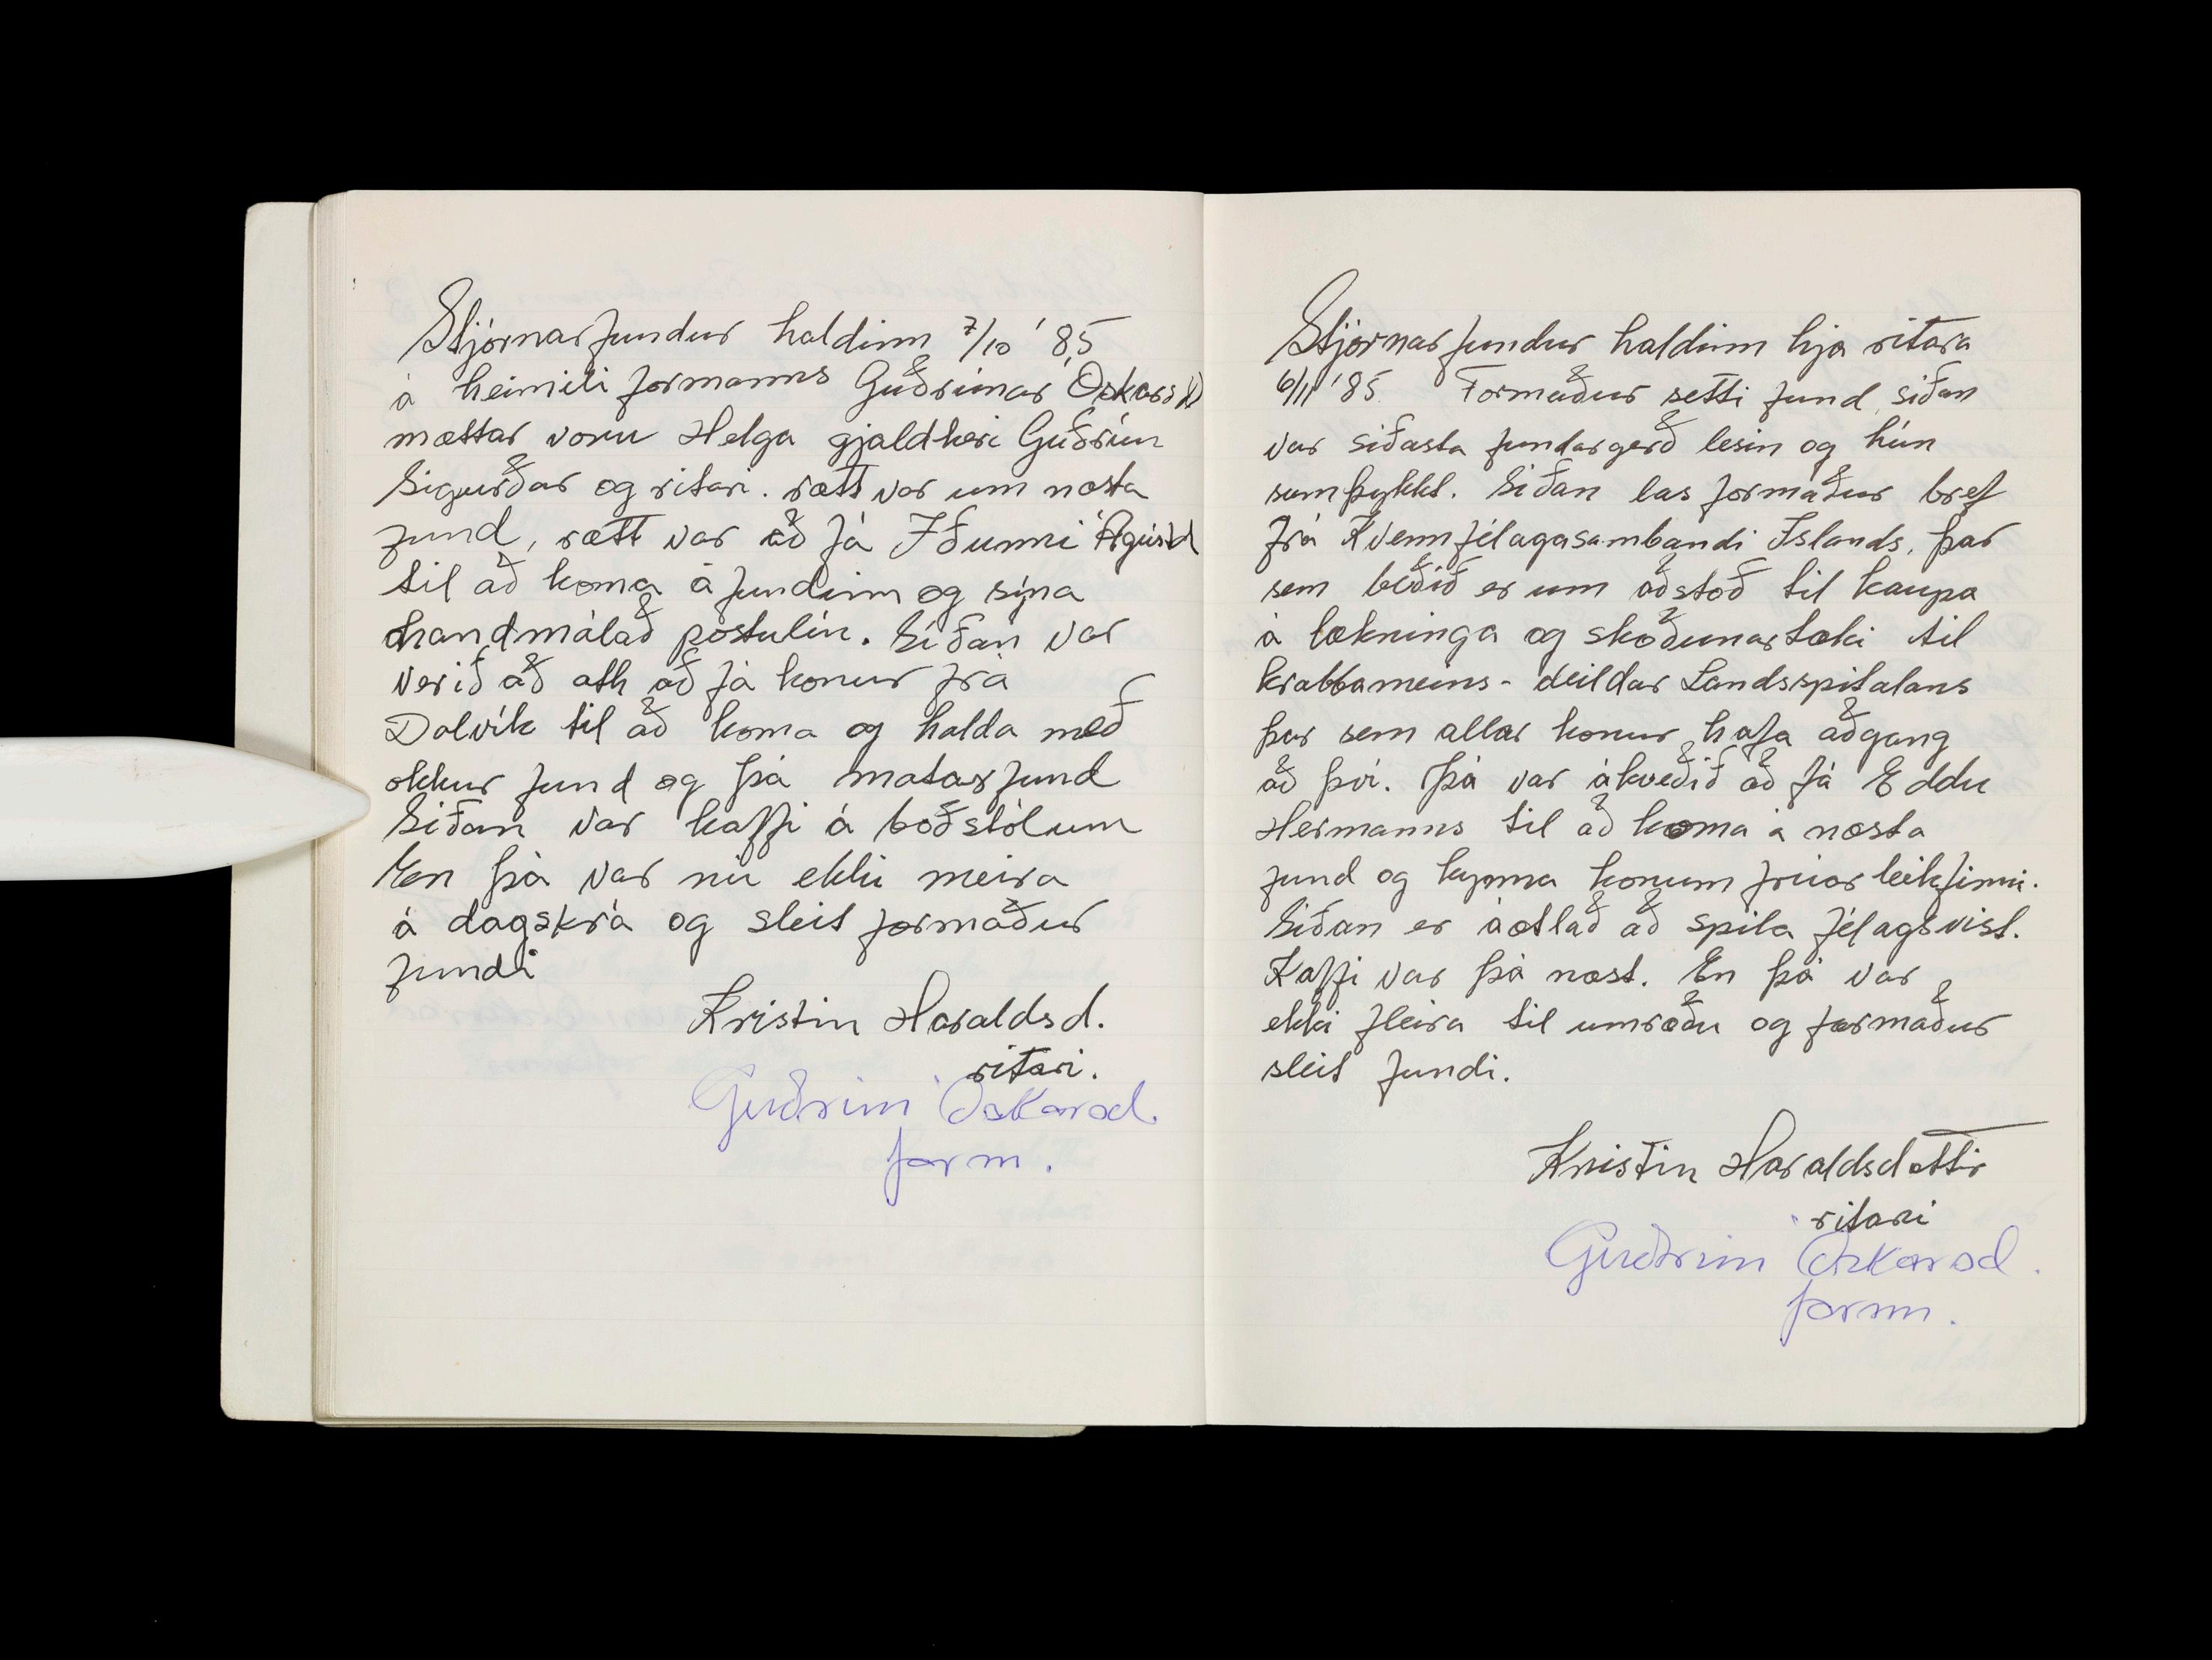 Stjórnarfundur haldinn 7/10 '85
á heimili formanns Guðrúnar Óskarsd
mættar voru Helga gjaldkeri Guðrún
Sigurðar og ritari. rætt var um næsta
fund, rætt var að fá Iðunni Ágústd
til að koma á fundinn og sýna
handmálað postulín. Síðan var
verið að ath að fá konur frá
Dalvík til að koma og halda með
okkur fund og þá matarfund
Síðan var kaffi á boðstólum
En þá var nú ekki meira
á dagskrá og sleit formaður
fundi
Kristín Haraldsd.
ritari.
Guðrún Óskarsd.
form.
Stjórnarfundur haldinn hja ritara
6/11 '85 Formaður setti fund, síðan
var síðasta fundargerð lesin og hún
samþykkt. Síðan las formaður bref
frá Kvennfélagasambandi Íslands, þar
sem beðið er um aðstoð til kaupa
á lækninga og skoðunartæki til
krabbameins- deildar Landsspitalans
þar sem allar konur hafa aðgang
að því. Þá var ákveðið að fá Eddu
Hermanns til að koma á næsta
fund og kynna konum frúarleikfimi.
Síðan er áætlað að spila félagsvist.
Kaffi var þá næst. En þá var
ekki fleira til umræðu og formaður
sleit fundi.
Kristín Haraldsdottir
ritari
Guðrún Óskarsd.
form.